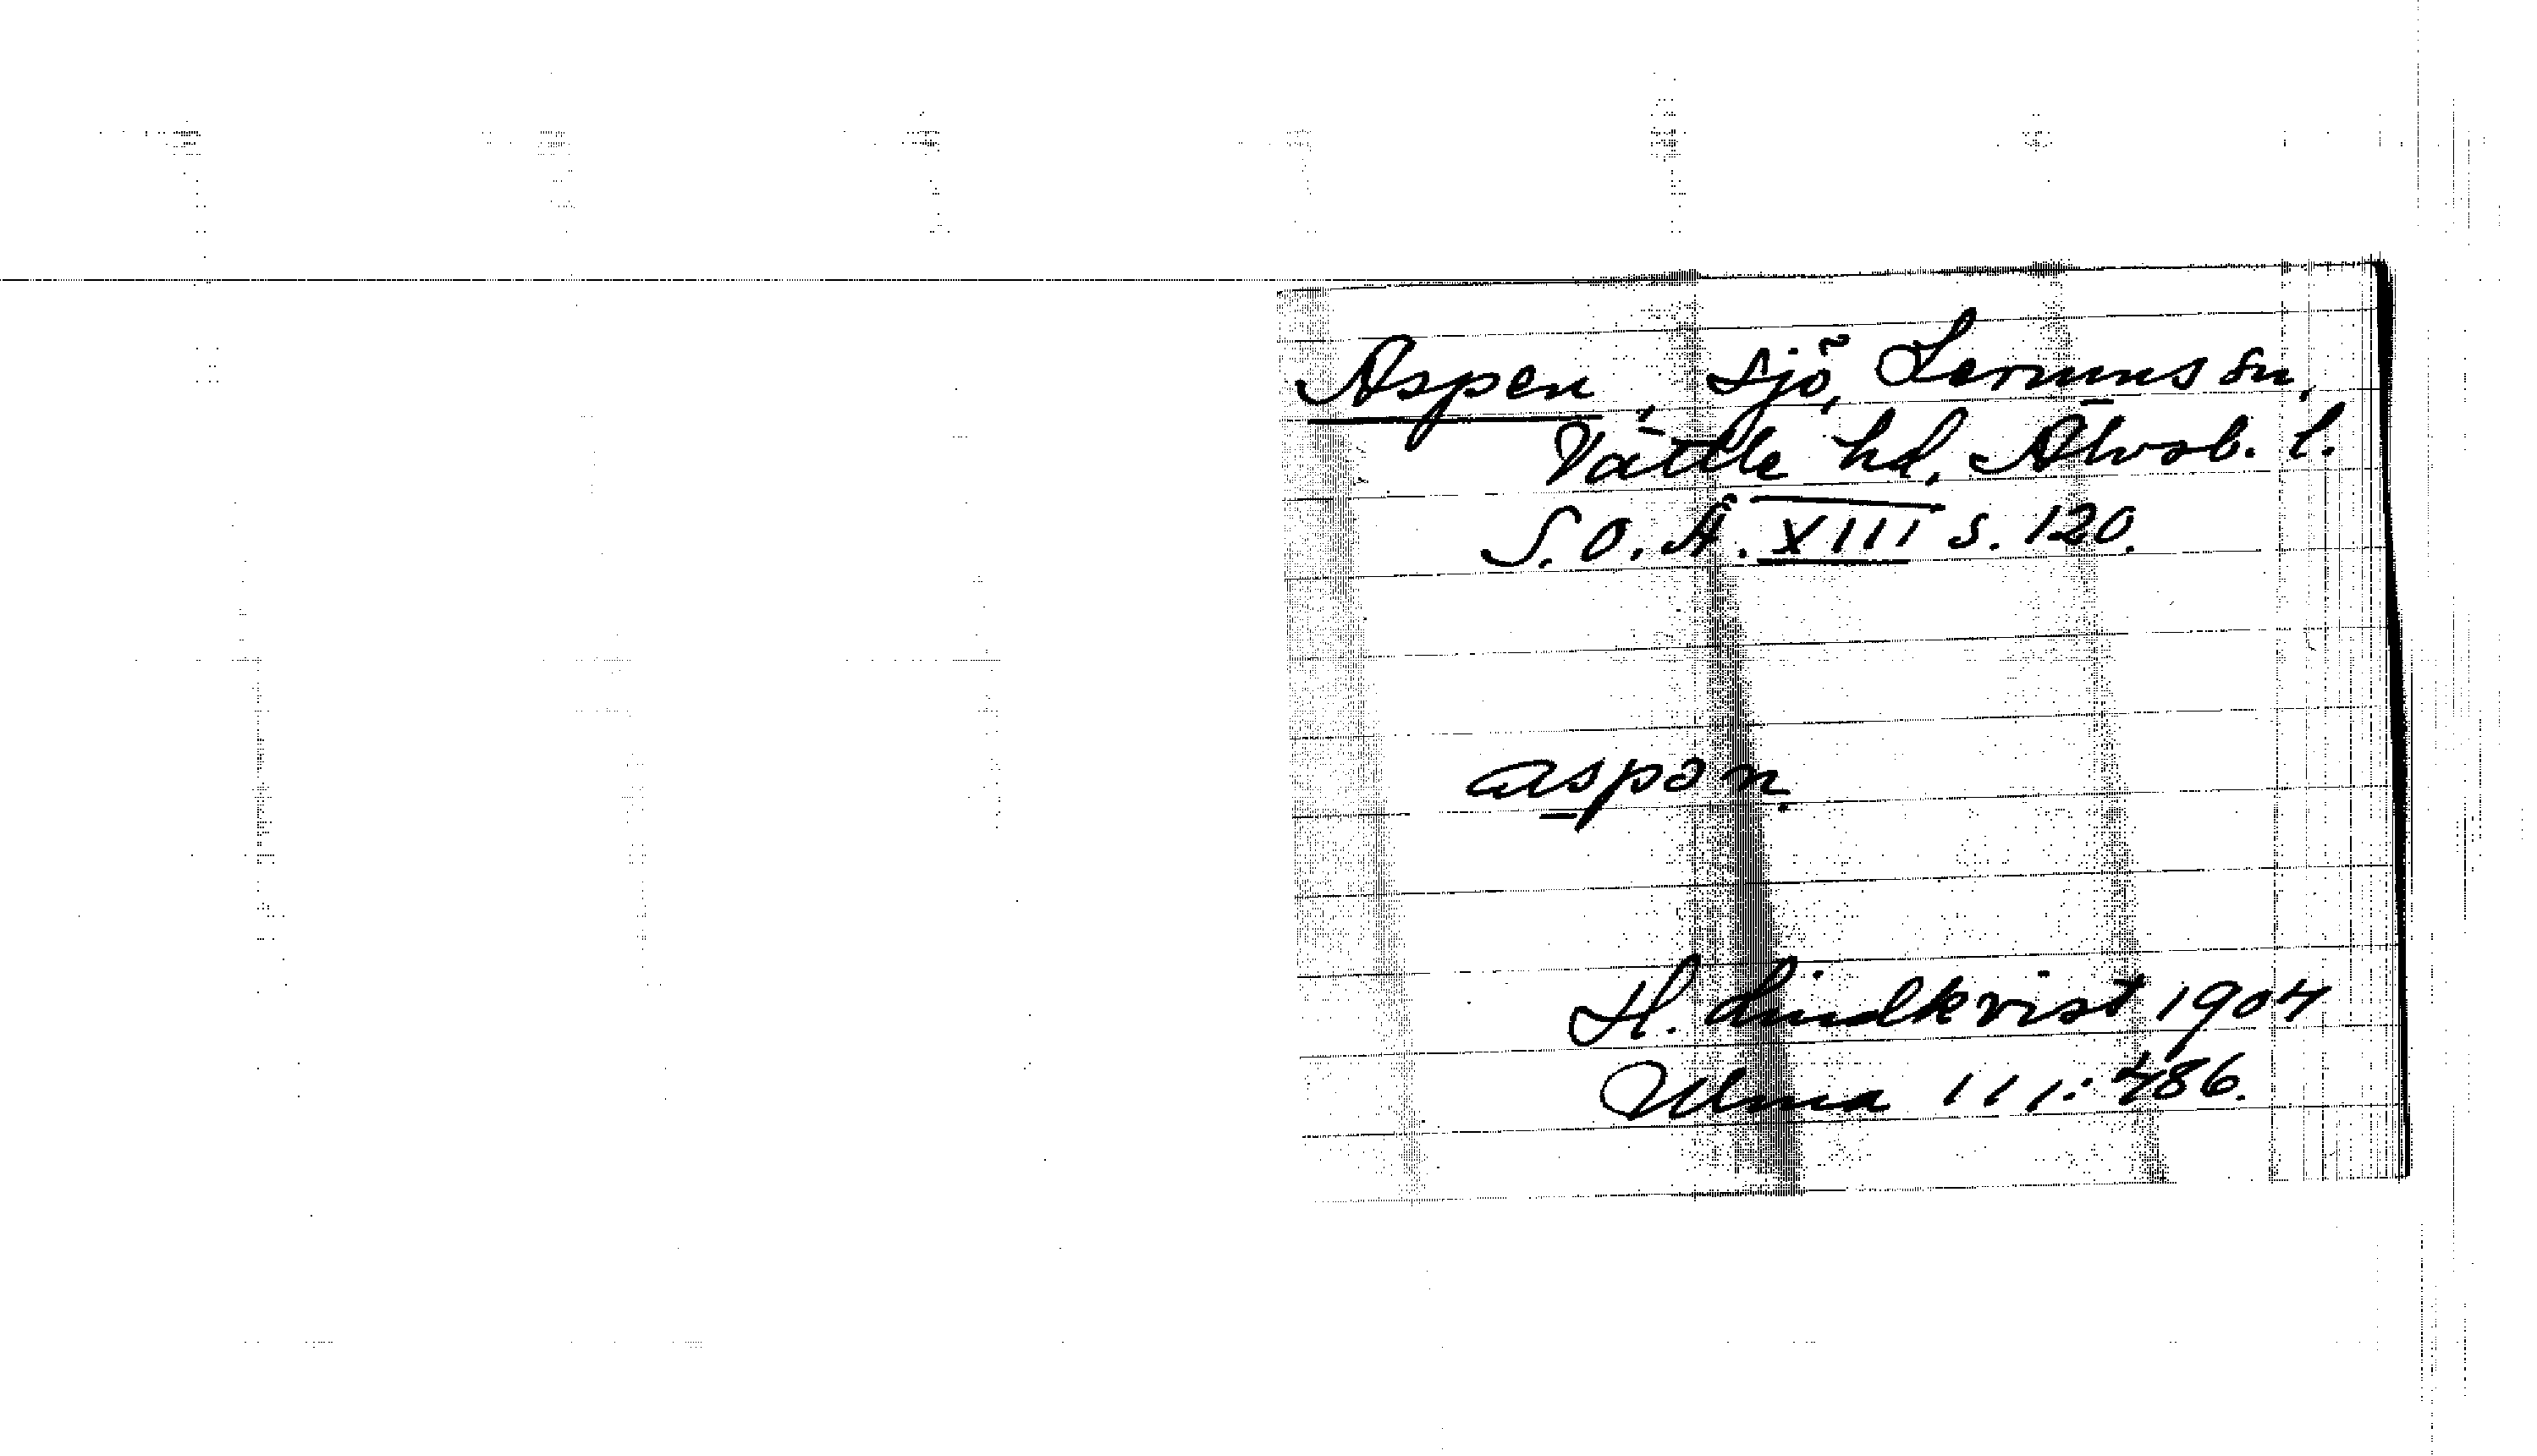 Aspen, sjö, Lerums sn,
Vättle hd, Älvsb. l.
S.O.Ä. XIII s. 120.
aspən.
H. Lindkvist 1904
Ulma 111:486.